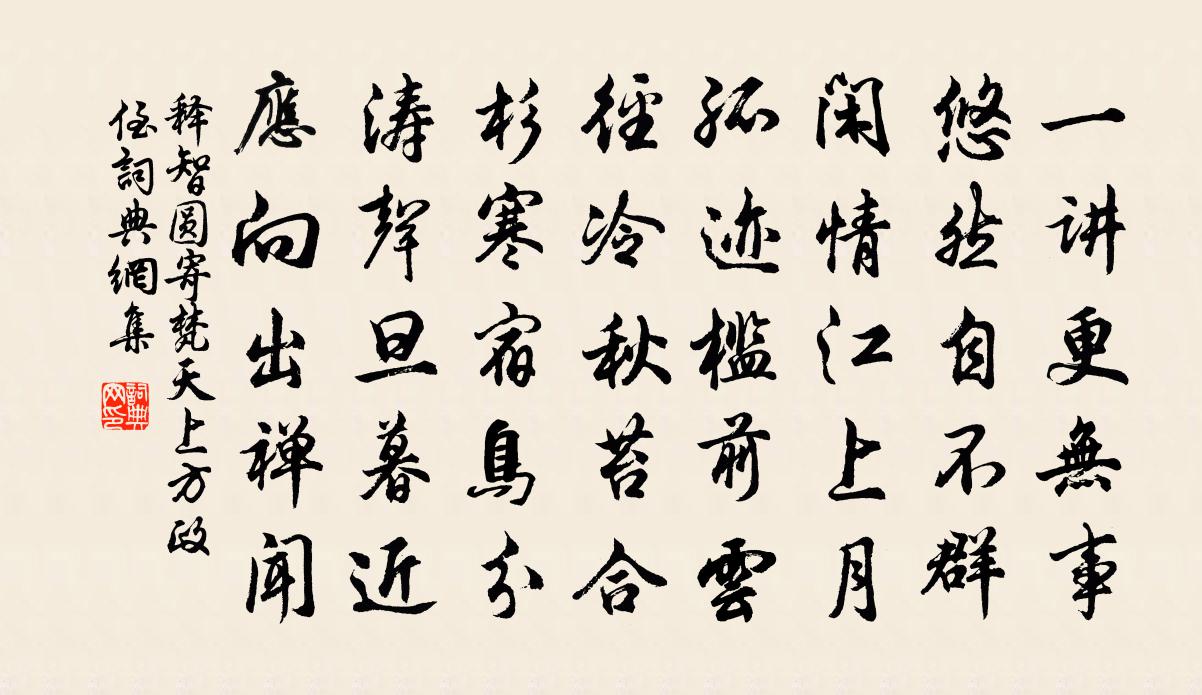 一讲更無事
悠然自不群
闲情江上月
孤迹槛前雲
徑冷秋苔合
杉寒宿鳥分
涛聲旦暮近
應向出禅聞
释智圆寄梵天上方政
詞典網集
詞典网印